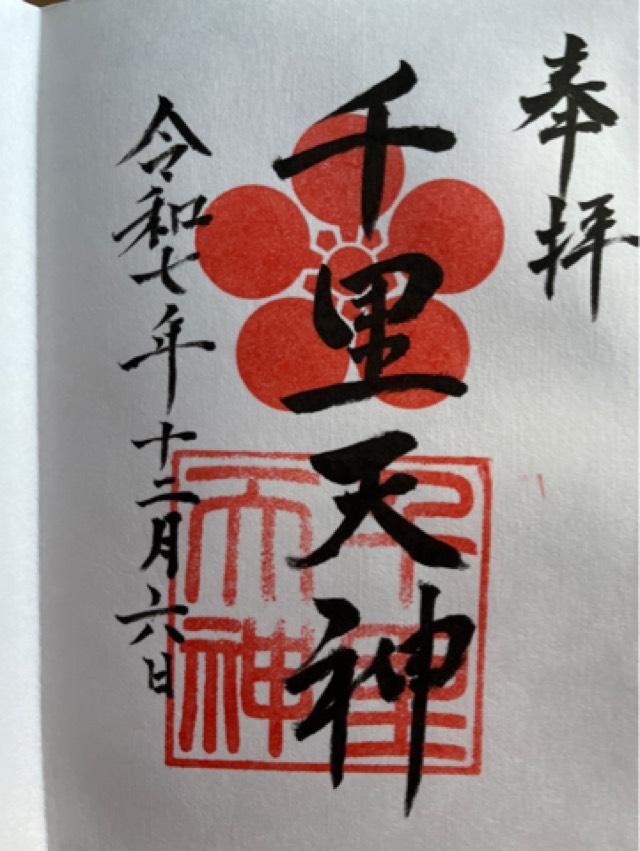 奉拝
千里天神
千里
天神
令和七年十二月六日